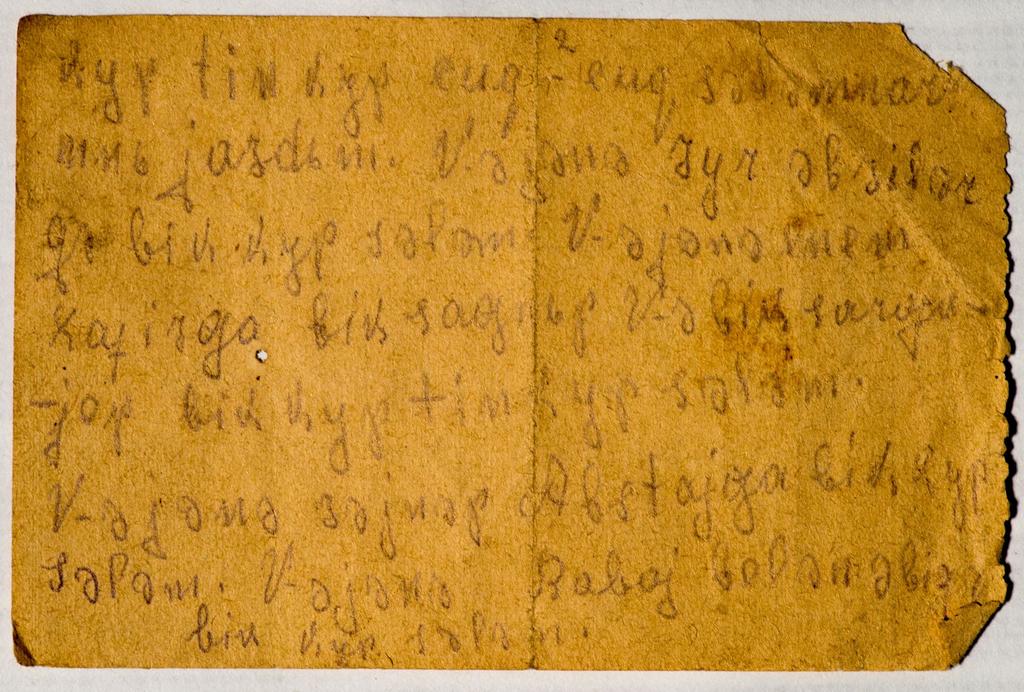 2
kyp tin kyp cuq-cuq sələmnər
mnь jazdьm. V-əjənə zyr əbsilər
gə bik kyp sələm V-əjənə enem
Kafirga bik sagnьp V-ə bik sarge-
-jəp bik kyp tin kyp sələm.
V-əjənə səjnəp Abstajga bik kyp
sələm. V-əjənə Babaj belən əbigə
bik kyp sələm.